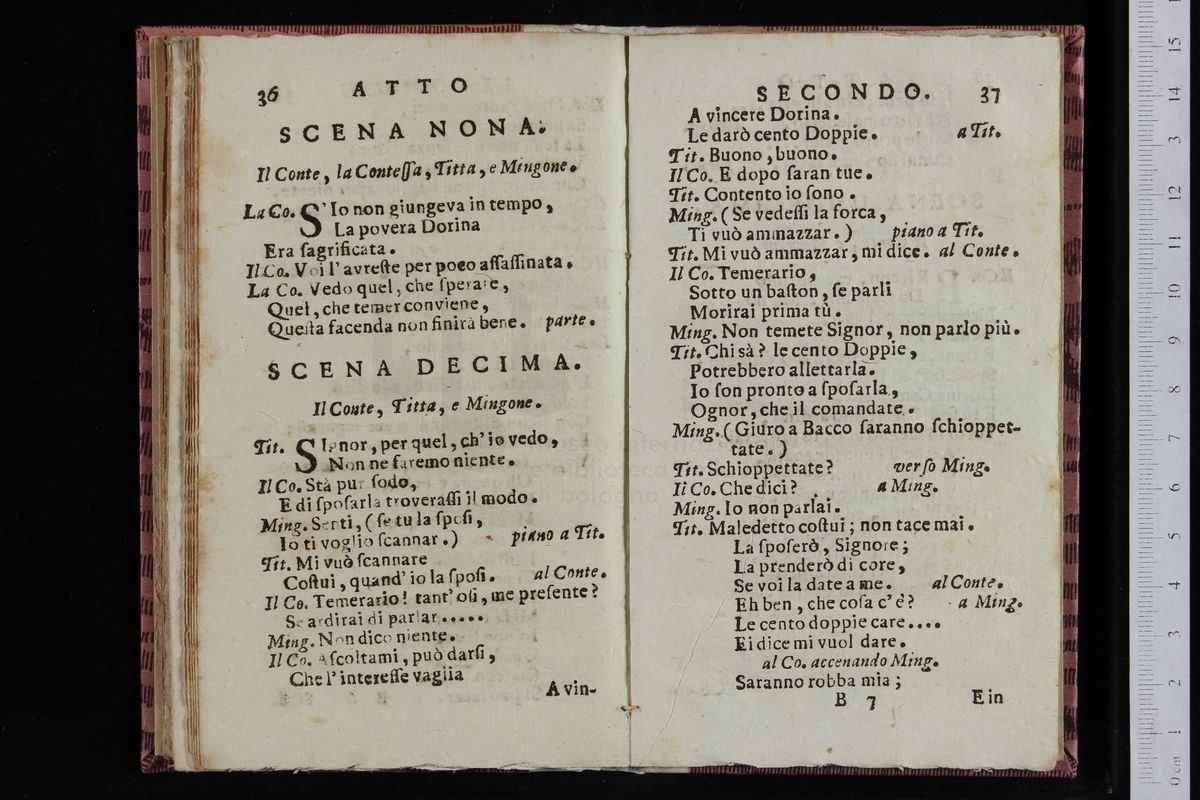 36 ATTO
SCENA NONA.
Il Conte, la Conteſſa, Titta, e Mingone.
La Co. S'Io non giungeva in tempo,
La povera Dorina
Era ſagrificata.
Il Co. Voi l'avreſte per poco aſſaſſinata.
La Co. Vedo quel, che ſperare,
Quel, che temer conviene,
Queſta facenda non finirà bene. parte.
SCENA DECIMA.
Il Conte, Titta, e Mingone.
Tit. SIgnor, per quel, ch'io vedo,
Non ne faremo niente.
Il Co. Stà pur ſodo,
E di ſpoſarla troveraſſi il modo.
Ming. Senti, (ſe tu la ſpoſi,
Io ti voglio ſcannar.) piano a Tit.
Tit. Mi vuò ſcannare
Coſtui, quand'io la ſpoſi. al Conte.
Il Co. Temerario! tant'oſi, me preſente?
Se ardirai di parlar.....
Ming. Non dico niente.
Il Co. Aſcoltami, può darſi,
Che l'intereſſe vaglia
A vin-
SECONDO. 37
A vincere Dorina.
Le darò cento Doppie. a Tit.
Tit. Buono, buono.
Il Co. E dopo ſaran tue.
Tit. Contento io ſono.
Ming. (Se vedeſſi la forca,
Ti vuò ammazzar.) piano a Tit.
Tit. Mi vuò ammazzar, mi dice. al Conte.
Il Co. Temerario,
Sotto un baſton, ſe parli
Morirai prima tù.
Ming. Non temete Signor, non parlo più.
Tit. Chi sà? le cento Doppie,
Potrebbero allettarla.
Io ſon pronto a ſpoſarla,
Ognor, che il comandate.
Ming. (Giuro a Bacco ſaranno ſchioppet-
tate.)
Tit. Schioppettate? verſo Ming.
Il Co. Che dici? a Ming.
Ming. Io non parlai.
Tit. Maledetto coſtui; non tace mai.
La ſpoſerò, Signore;
La prenderò di core,
Se voi la date a me. al Conte.
Eh ben, che coſa c'è? a Ming.
Le cento doppie care....
Ei dice mi vuol dare.
al Co. accenando Ming.
Saranno robba mia;
B 7 E in